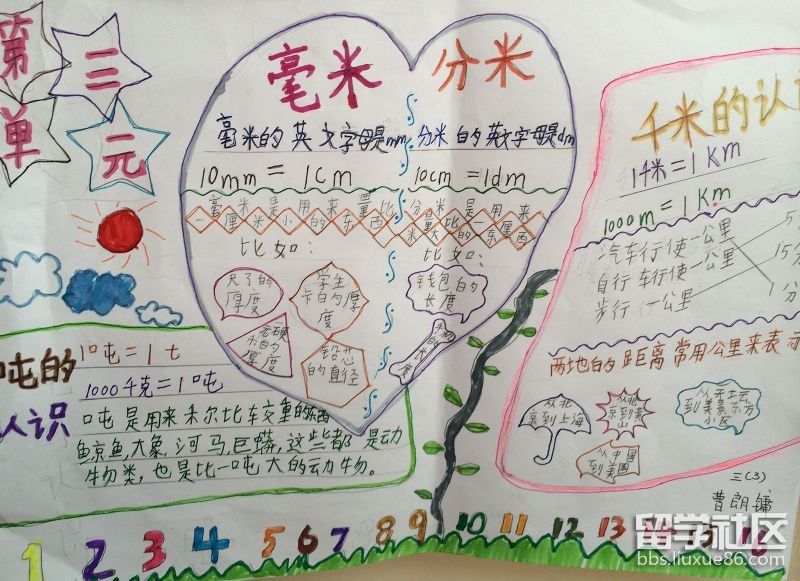 第三
单元
毫米
毫米的英文字母是mm
10mm = 1cm
一毫米是用来量比
厘米小的东西
比如：
尺子的
厚度
学生
卡的厚
度
硬
币的
厚度
铅芯
的直径
分米
分米的英文字母是dm
10cm = 1dm
分米是用来
量比一厘
米大的东西
比如：
钱包的
长度
千米的认
1千米 = 1 Km
1000m = 1 Km
汽车行使一公里
自行车行使一公里
步行一公里
5
15分
1分
两地的距离常用公里来表示
从北
京到上海
从北
京到黄
山
到美景东方
小区
从中国
到美国
三(3)
曹朗镛
吨的
认识
1吨 = 1 t
1000千克 = 1吨
吨是用来称比较重的东西
鲸鱼,大象,河马,巨蟒,这些都是动
物类,也是比一吨大的动物。
1 2 3 4 5 6 7 8 9 10 11 12 13 14 15 16
留学社区
bbs.liuxue86.com